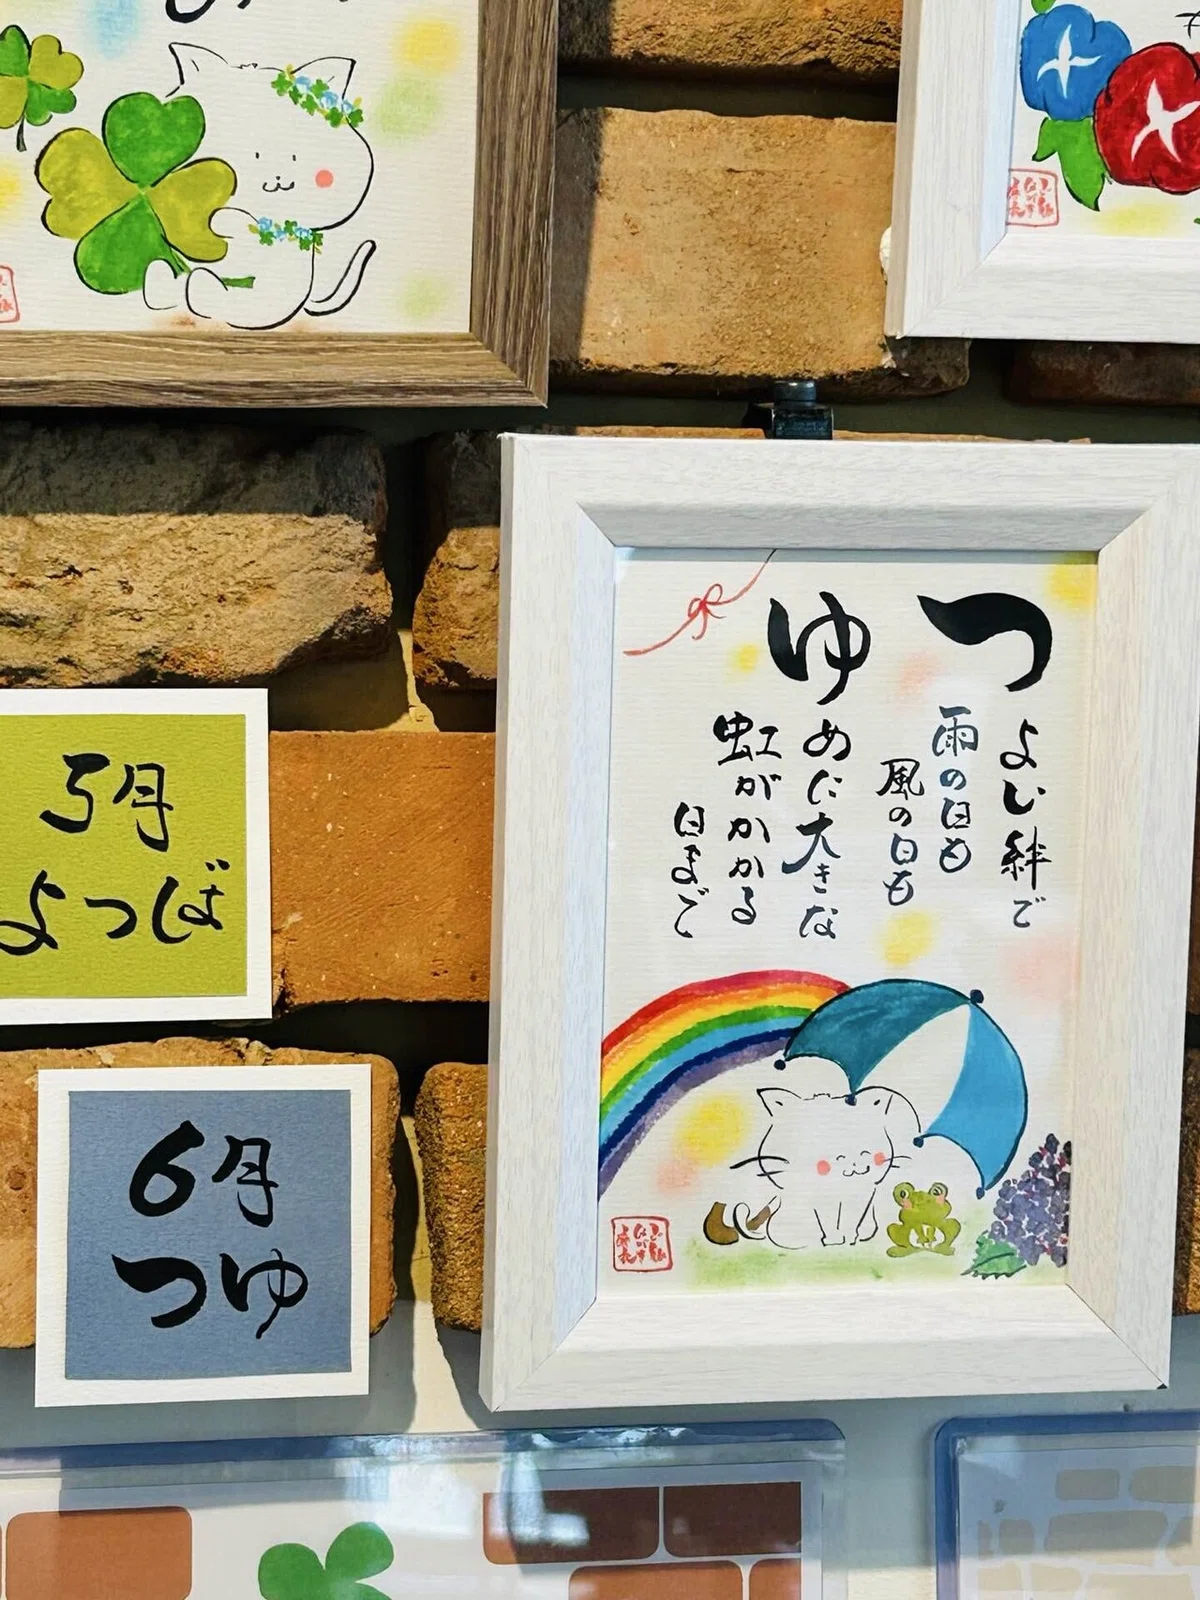 5月
よつば
6月
つゆ
つよい絆で
雨の日も
風の日も
ゆめに大きな
虹がかかる
日まで